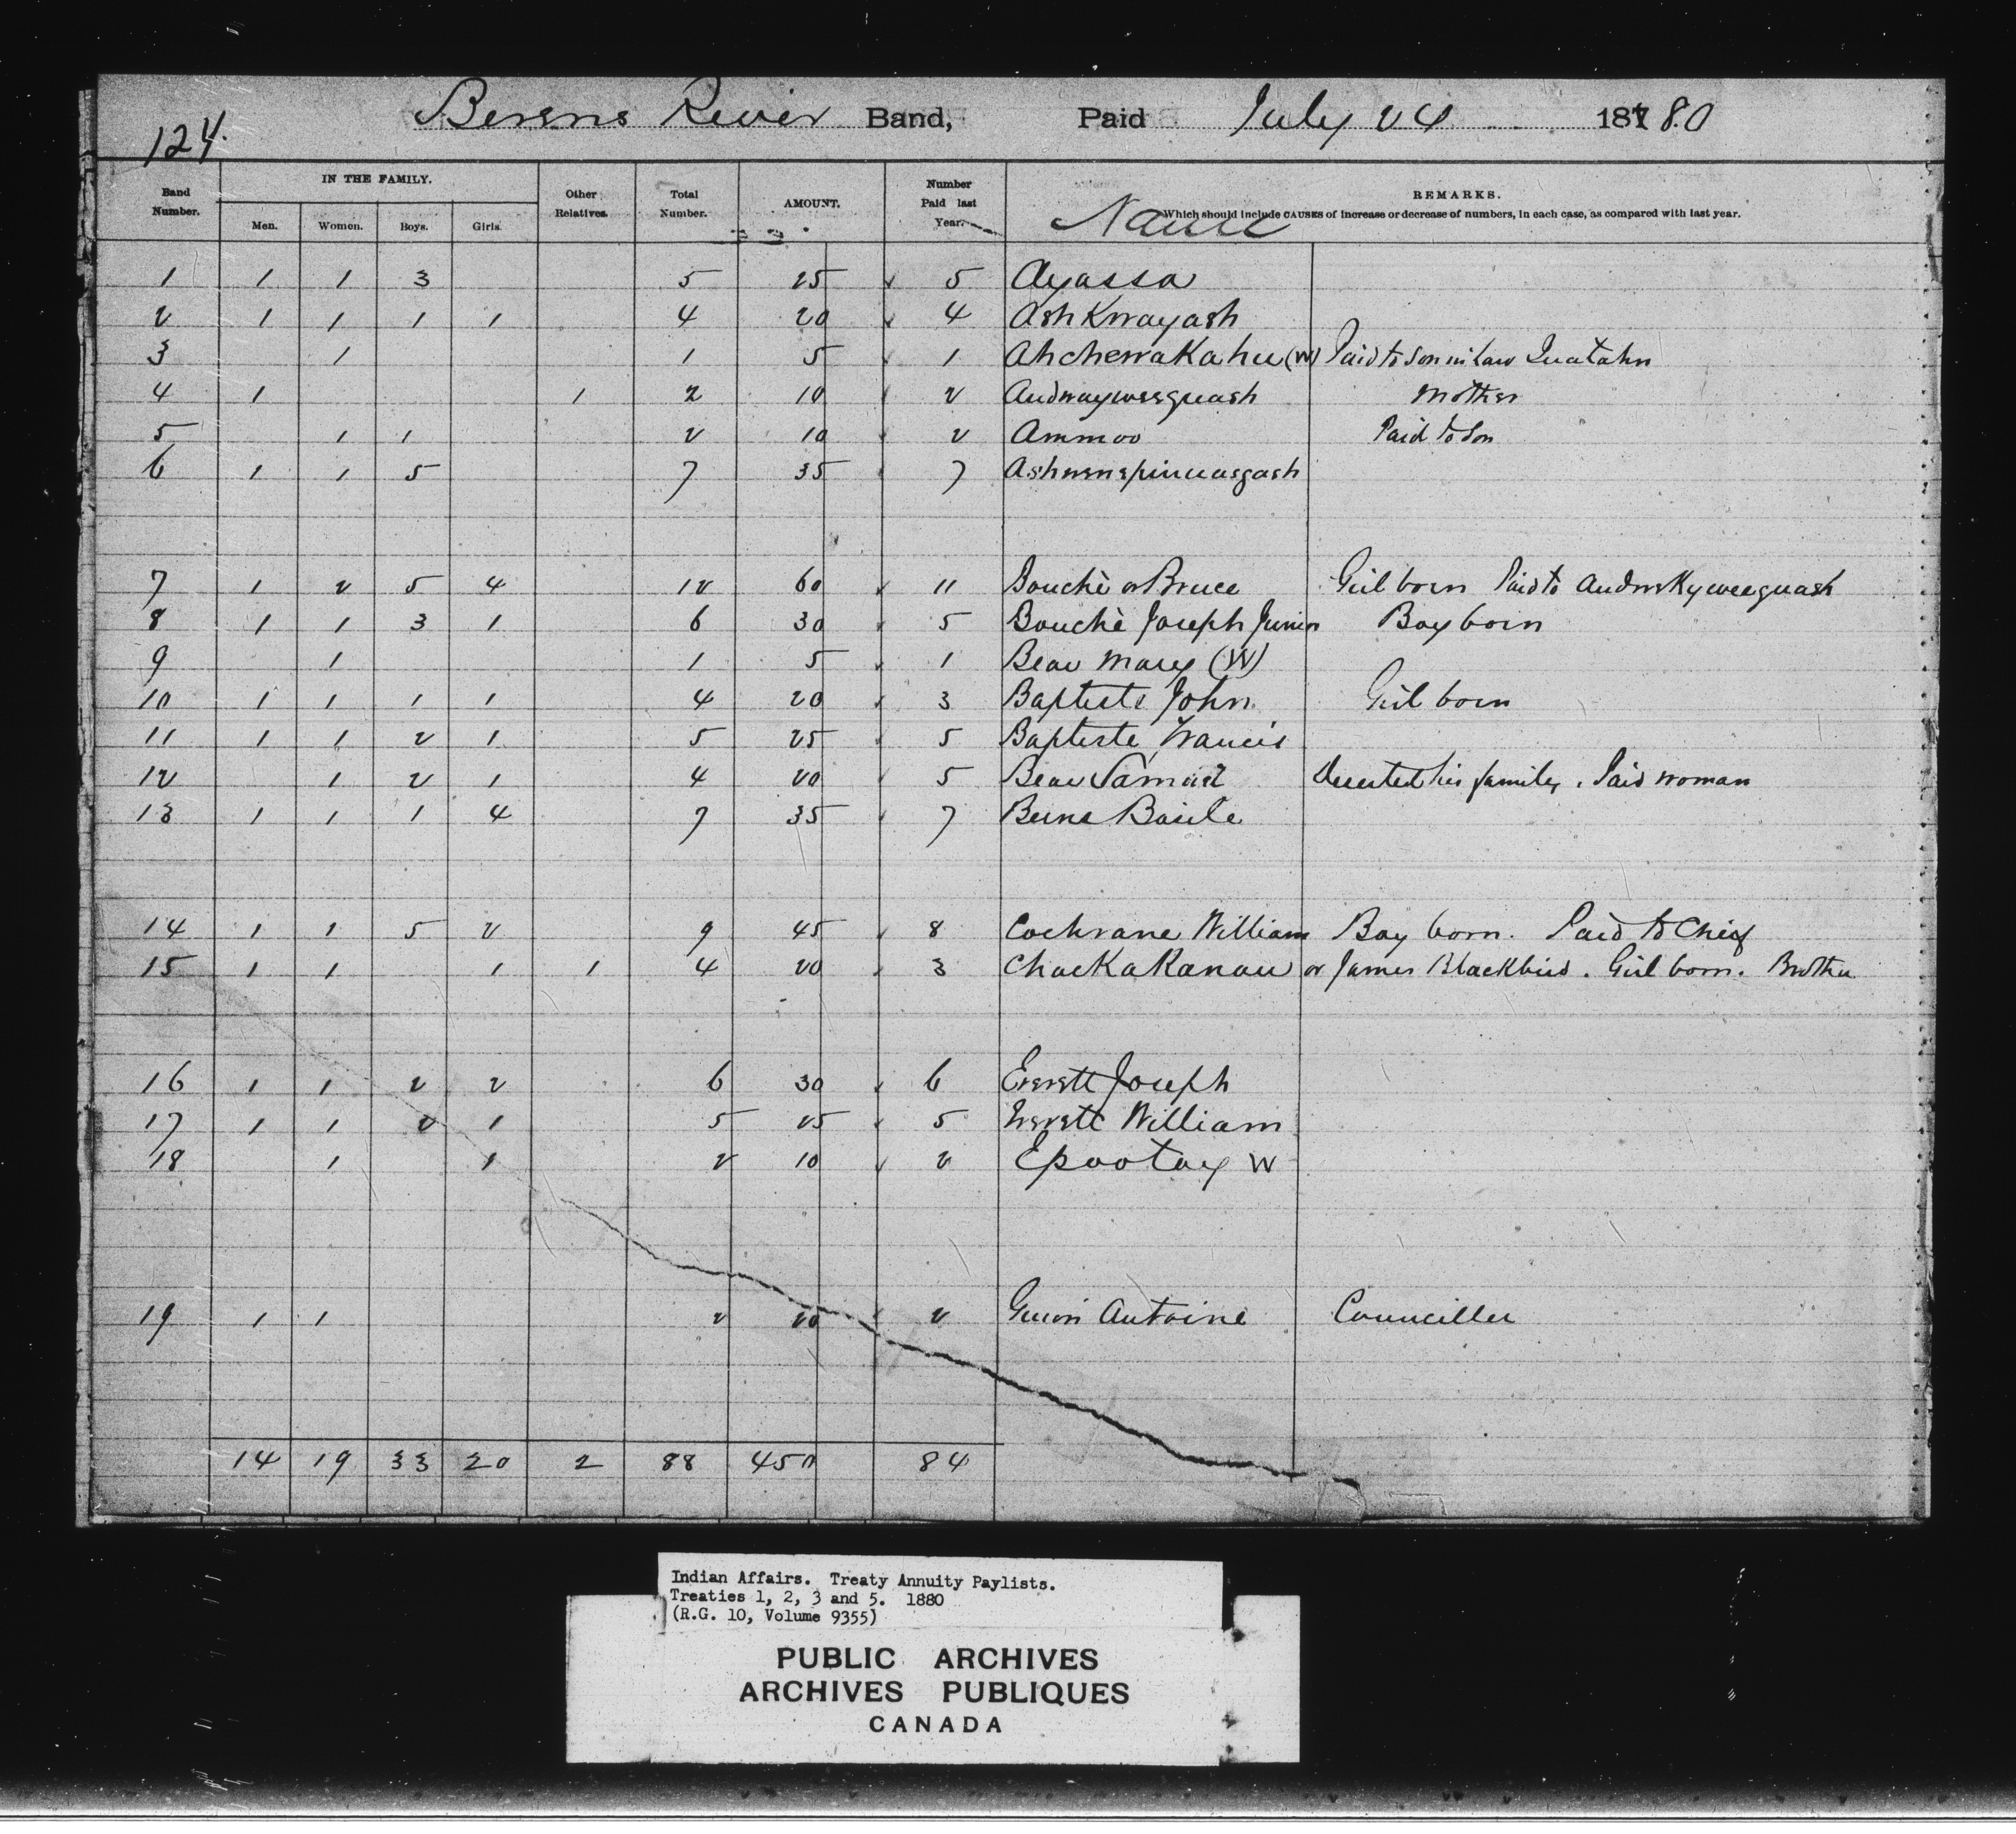 124.
Berens River Band, Paid July 24 187 80
Band Number. IN THE FAMILY. Men. Women. Boys. Girls. Other Relatives. Total Number. AMOUNT. Number Paid last Year. Name REMARKS.
Which should include CAUSES of increase or decrease of numbers, in each case, as compared with last year.
1 1 1 3 5 25 5 Ayassa
2 1 1 1 1 4 20 4 Ashkwayash
3 1 1 5 1 Ahchewakahu (W) Paid to Son in Law
4 1 1 2 10 2 Andwayweequash Mother
5 1 1 2 10 2 Ammoo Paid to Son
6 1 1 5 7 35 7
7 1 2 5 4 12 60 11 Bouchè or Bruce Girl born Paid to Andwskyweequash
8 1 1 3 1 6 30 5 Bouchè Joseph Junior Boy born
9 1 1 5 1 Bear Mary (W)
10 1 1 1 1 4 20 3 Baptiste John Girl born
11 1 1 2 1 5 25 5 Baptiste Francis
12 1 2 1 4 20 5 Bear Deserted his family. Paid woman
13 1 1 1 4 7 35 7 Berens Basile
14 1 1 5 2 9 45 8 Cochrane William Boy born. Paid to Chief
15 1 1 1 1 4 20 3 Chackakanau or James Blackbird. Girl born. Brother
16 1 1 2 2 6 30 6 Everett Joseph
17 1 1 2 1 5 25 5 Everett William
18 1 1 2 10 2 Epootay W
19 1 1 2 20 2 Guion Antoine Councillor
14 19 33 20 2 88 450 84
Indian Affairs. Treaty Annuity Paylists.
Treaties 1, 2, 3 and 5. 1880
(R.G. 10, Volume 9355)
PUBLIC ARCHIVES
ARCHIVES PUBLIQUES
CANADA